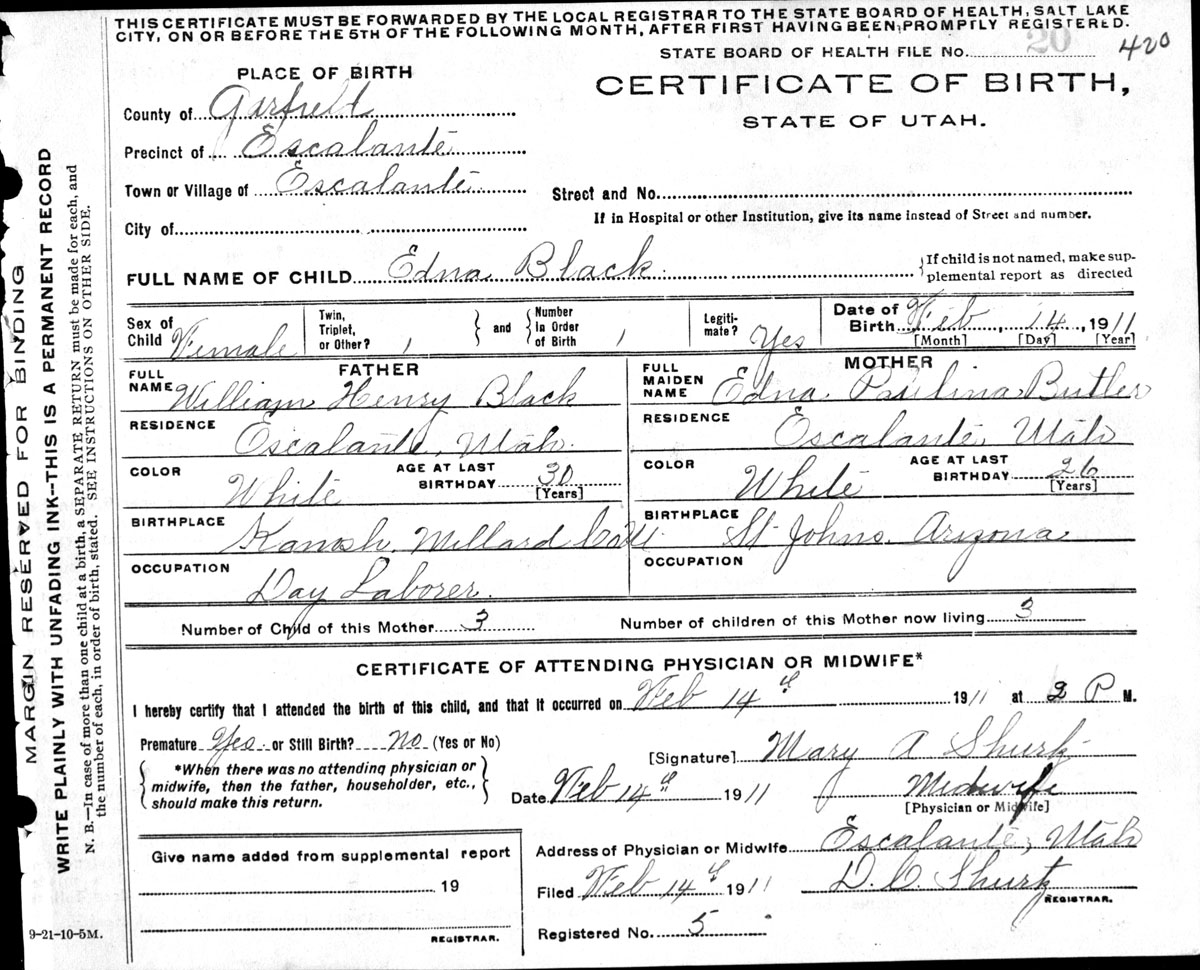 THIS CERTIFICATE MUST BE FORWARDED BY THE LOCAL REGISTRAR TO THE STATE BOARD OF HEALTH, SALT LAKE
CITY, ON OR BEFORE THE 5TH OF THE FOLLOWING MONTH, AFTER FIRST HAVING BEEN PROMPTLY REGISTERED.
STATE BOARD OF HEALTH FILE No. 20 420
PLACE OF BIRTH
CERTIFICATE OF BIRTH,
STATE OF UTAH.
County of Garfield
Precinct of Escalante
Town or Village of Escalante
Street and No.
If in Hospital or other Institution, give its name instead of Street and number.
City of
FULL NAME OF CHILD Edna Black
{If child is not named, make sup-
plemental report as directed
Sex of Child Female
Twin, Triplet, or Other? 1 } and { Number In Order of Birth 1
Legiti-mate? Yes
Date of Birth Feb, 14, 1911
[Month] [Day] [Year]
FATHER
MOTHER
FULL NAME William Henry Black
FULL MAIDEN NAME Edna Paulina Butler
RESIDENCE Escalante, Utah.
RESIDENCE Escalante, Utah
COLOR White AGE AT LAST BIRTHDAY 30 [Years]
COLOR White AGE AT LAST BIRTHDAY 26 [Years]
BIRTHPLACE Kanosh, Millard Co U
BIRTHPLACE St Johns, Arizona
OCCUPATION Day Laborer.
OCCUPATION
Number of Child of this Mother 3
Number of children of this Mother now living 3
CERTIFICATE OF ATTENDING PHYSICIAN OR MIDWIFE*
I hereby certify that I attended the birth of this child, and that it occurred on Feb 14th 1911 at 2 P M.
Premature Yes. or Still Birth? no (Yes or No)
[Signature] Mary A Shurtz
{ *When there was no attending physician or
midwife, then the father, householder, etc.,
should make this return. }
Date Feb 14th 1911
Midwife
[Physician or Midwife]
Give name added from supplemental report
19
REGISTRAR.
Address of Physician or Midwife Escalante, Utah
Filed Feb 14th 1911 D. C. Shurtz
REGISTRAR.
Registered No. 5
9-21-10-5M.
MARGIN RESERVED FOR BINDING
WRITE PLAINLY WITH UNFADING INK--THIS IS A PERMANENT RECORD
N. B.—In case of more than one child at a birth, a SEPARATE RETURN must be made for each, and
the number of each, in order of birth, stated. SEE INSTRUCTIONS ON OTHER SIDE.